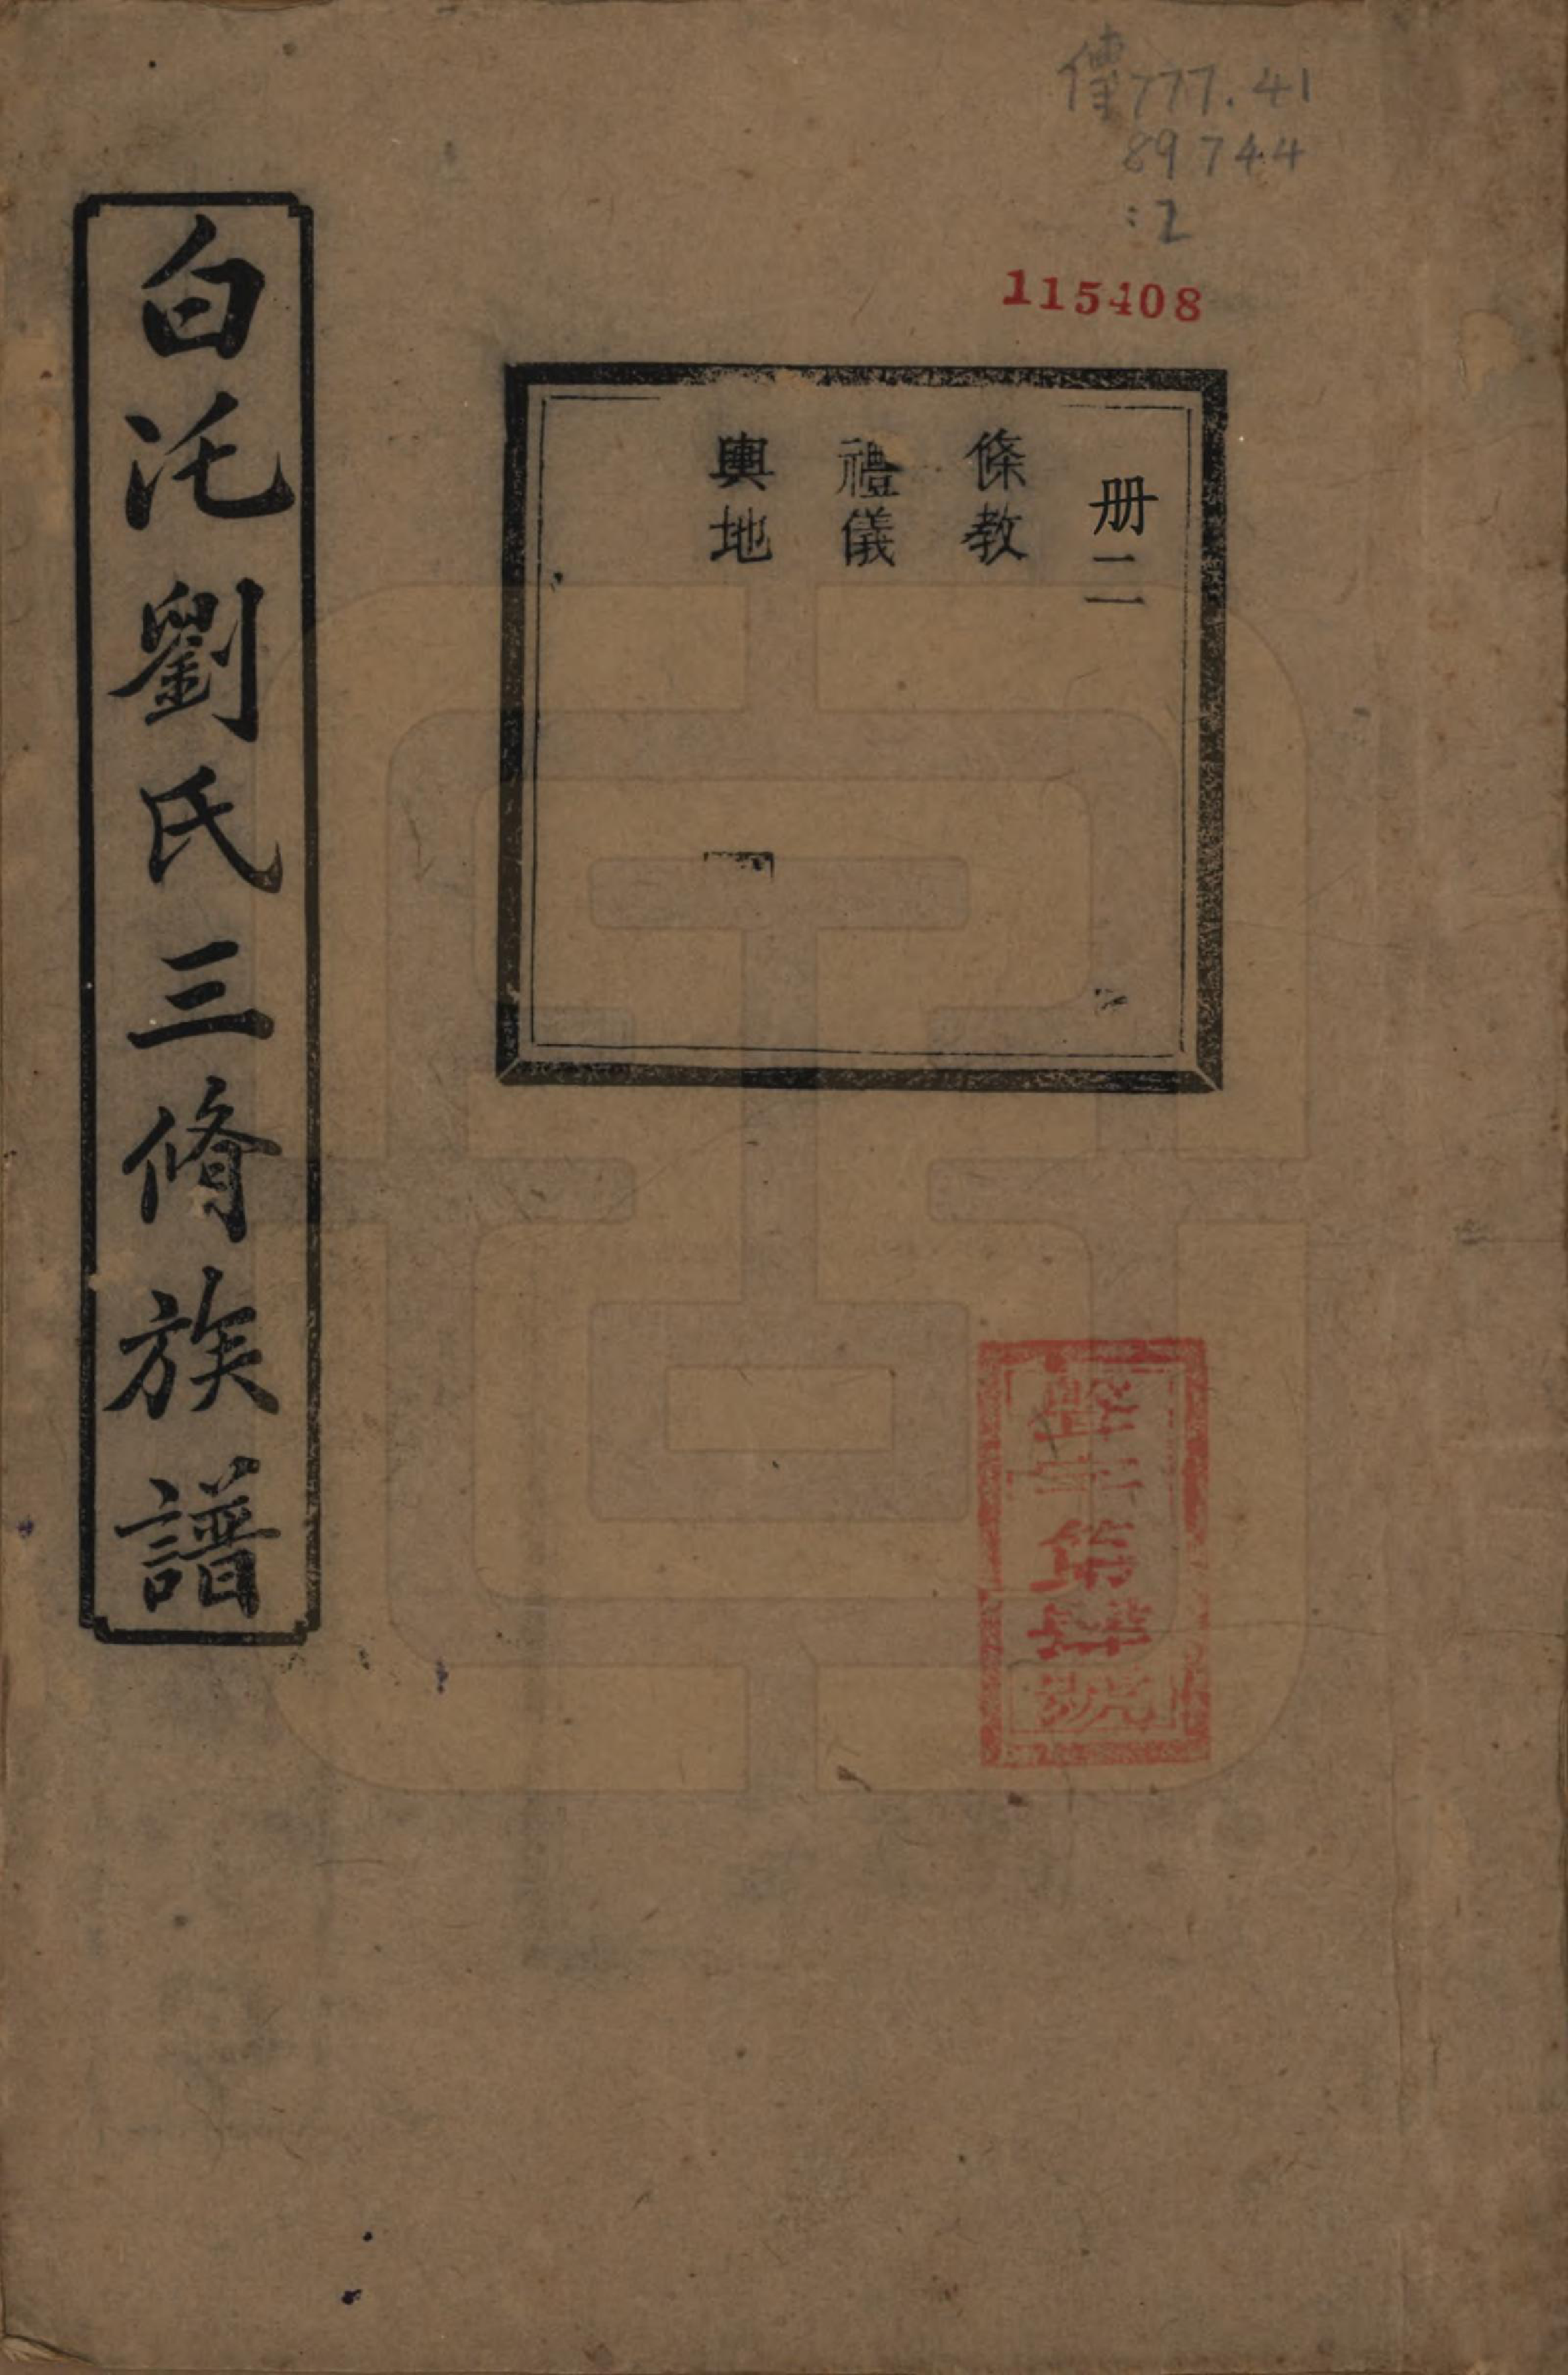 傳777.41
89744
:2
115408
册二
條教
禮儀
輿地
白沱劉氏三脩族譜